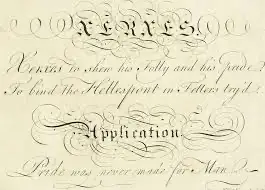 XERXES.
Xerxes to shew his Folly and his pride
To bind the Hellespont in Fetters try'd.
Application
Pride was never made for Man